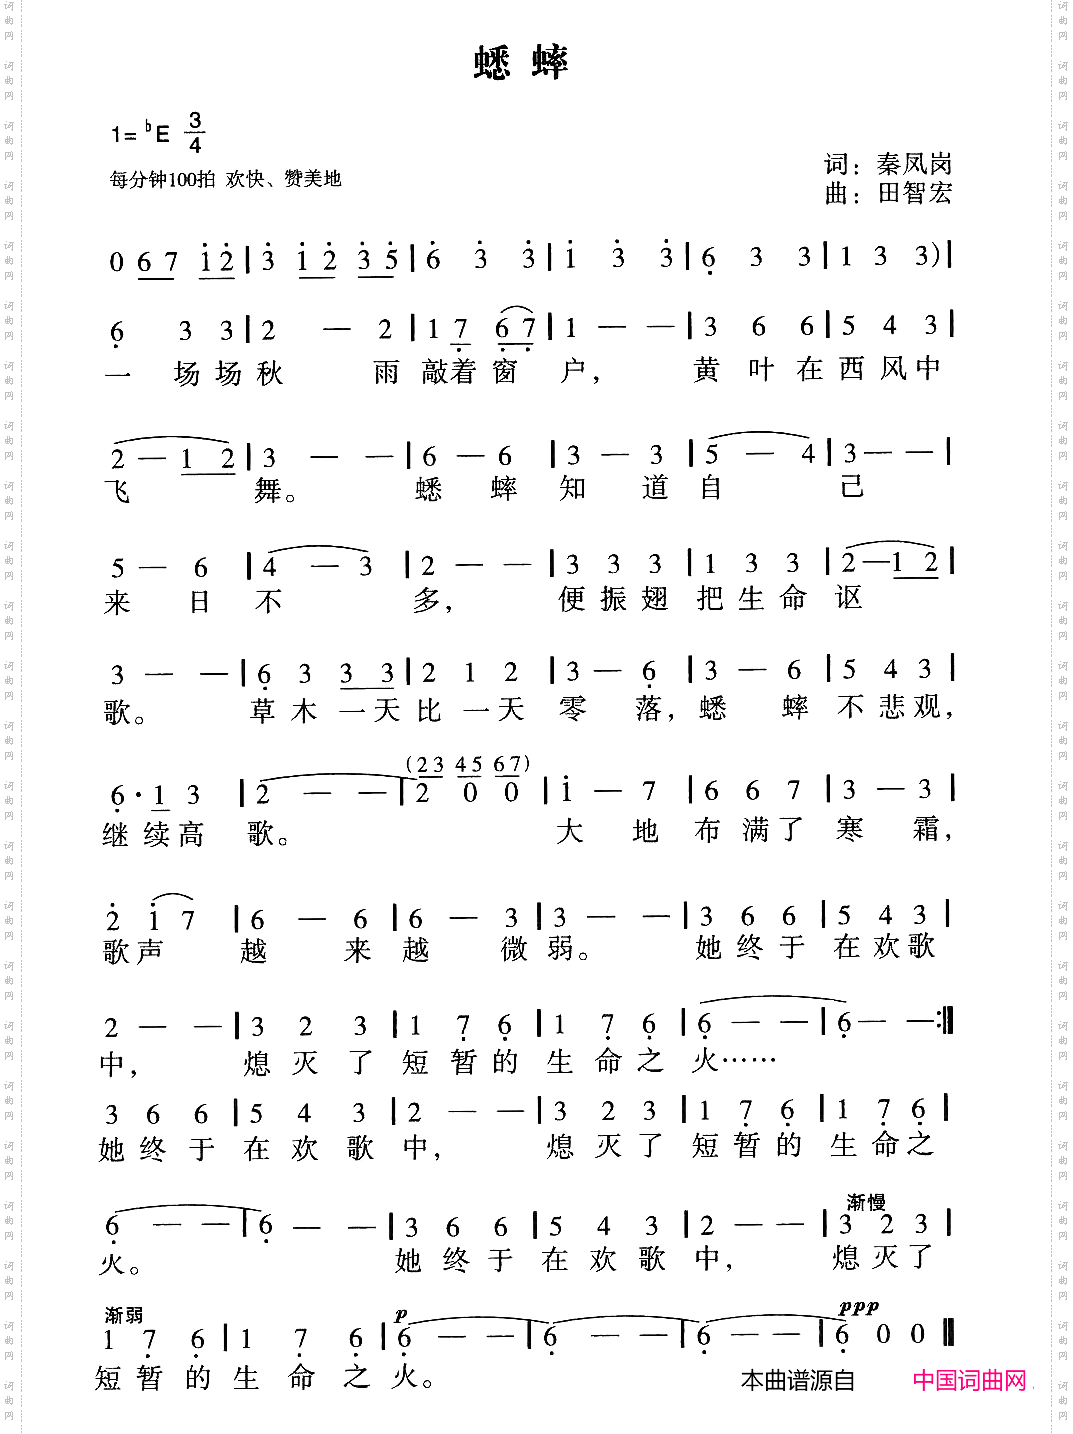 蟋蟀
1=♭E 3/4
每分钟100拍 欢快、赞美地
词：秦凤岗
曲：田智宏
0 6 7 i 2 | 3 i 2 3 5 | 6 3 3 | i 3 3 | 6 3 3 | 1 3 3 ) |
6 3 3 | 2 — 2 | 1 7 6 7 | 1 — — | 3 6 6 | 5 4 3 |
一 场 场 秋 雨 敲着 窗 户， 黄 叶 在 西 风 中
2 — 1 2 | 3 — — | 6 — 6 | 3 — 3 | 5 — 4 | 3 — — |
飞 舞。 蟋 蟀 知 道 自 己
5 — 6 | 4 — 3 | 2 — — | 3 3 3 | 1 3 3 | 2 — 1 2 |
来 日 不 多， 便 振 翅 把 生 命 讴
3 — — | 6 3 3 3 | 2 1 2 | 3 — 6 | 3 — 6 | 5 4 3 |
歌。 草 木 一 天 比 一 天 零 落， 蟋 蟀 不 悲 观，
(2 3 4 5 6 7)
6 · 1 3 | 2 — — | 2 0 0 | i — 7 | 6 6 7 | 3 — 3 |
继 续 高 歌。 大 地 布 满 了 寒 霜，
2 i 7 | 6 — 6 | 6 — 3 | 3 — — | 3 6 6 | 5 4 3 |
歌 声 越 来 越 微 弱。 她 终 于 在 欢 歌
2 — — | 3 2 3 | 1 7 6 | 1 7 6 | 6 — — | 6 — — :||
中， 熄 灭 了 短 暂 的 生 命 之 火……
3 6 6 | 5 4 3 | 2 — — | 3 2 3 | 1 7 6 | 1 7 6 |
她 终 于 在 欢 歌 中， 熄 灭 了 短 暂 的 生 命 之
渐慢
6 — — | 6 — — | 3 6 6 | 5 4 3 | 2 — — | 3 2 3 |
火。 她 终 于 在 欢 歌 中， 熄 灭 了
渐弱 p ppp
1 7 6 | 1 7 6 | 6 — — | 6 — — | 6 — — | 6 0 0 ||
短 暂 的 生 命 之 火。
本曲谱源自 中国词曲网